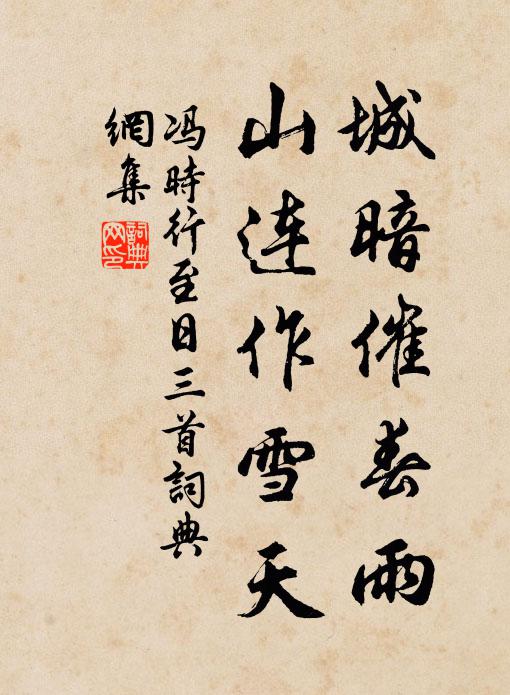 城暗催春雨
山連作雪天
馮時行至日三首詞典
網集
詞典
网印